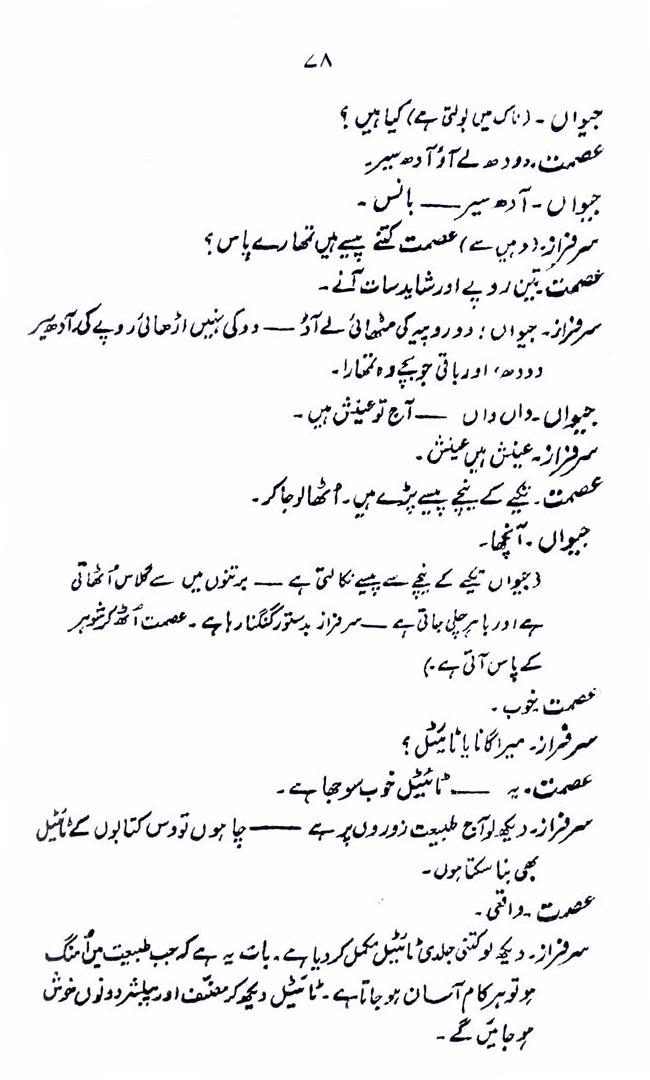 ۷۸
جیواں ۔ (ناک میں بولتی ہے) کیا ہیں ؟
عصمت ۔ دودھ لے آؤ آدھ سیر۔
جیواں ۔ آدھ سیر —— بانس ۔
سرفراز۔ (وہیں سے) عصمت کتنے پیسے ہیں تمھارے پاس ؟
عصمت ۔ تین روپے اور شاید سات آنے ۔
سرفراز۔ جیواں ؛ دو روپیہ کی مٹھائی لے آؤ —— دو کی نہیں اڑھائی روپے کی۔ آدھ سیر
دودھ، اور باقی جو بچے وہ تمھارا ۔
جیواں ۔ داں واں —— آج تو عینش ہیں ۔
سرفراز۔ عینش ہیں عینش ۔
عصمت ۔ تکیے کے نیچے پیسے پڑے ہیں ۔ اُٹھا لو جا کر ۔
جیواں ۔ آنچھا۔
(جیواں تکیے کے نیچے سے پیسے نکالتی ہے — برتنوں میں سے گلاس اُٹھاتی
ہے اور باہر چلی جاتی ہے — سرفراز بدستور گنگنا رہا ہے ۔ عصمت اُٹھ کر شوہر
کے پاس آتی ہے ۔)
عصمت ۔ خوب ۔
سرفراز۔ میرا گانا یا ٹائیٹل ؟
عصمت ۔ یہ —— ٹائیٹل خوب سوجھا ہے ۔
سرفراز۔ دیکھ لو آج طبیعت زوروں پر ہے —— چاہوں تو دس کتابوں کے ٹائیٹل
بھی بنا سکتا ہوں ۔
عصمت ۔ واقعی ۔
سرفراز۔ دیکھ لو کتنی جلدی ٹائیٹل مکمل کر دیا ہے ۔ بات یہ ہے کہ جب طبیعت میں اُمنگ
ہو تو ہر کام آسان ہو جاتا ہے ۔ ٹائیٹل دیکھ کر مصنّف اور پبلشر دونوں خوش
ہو جائیں گے ۔